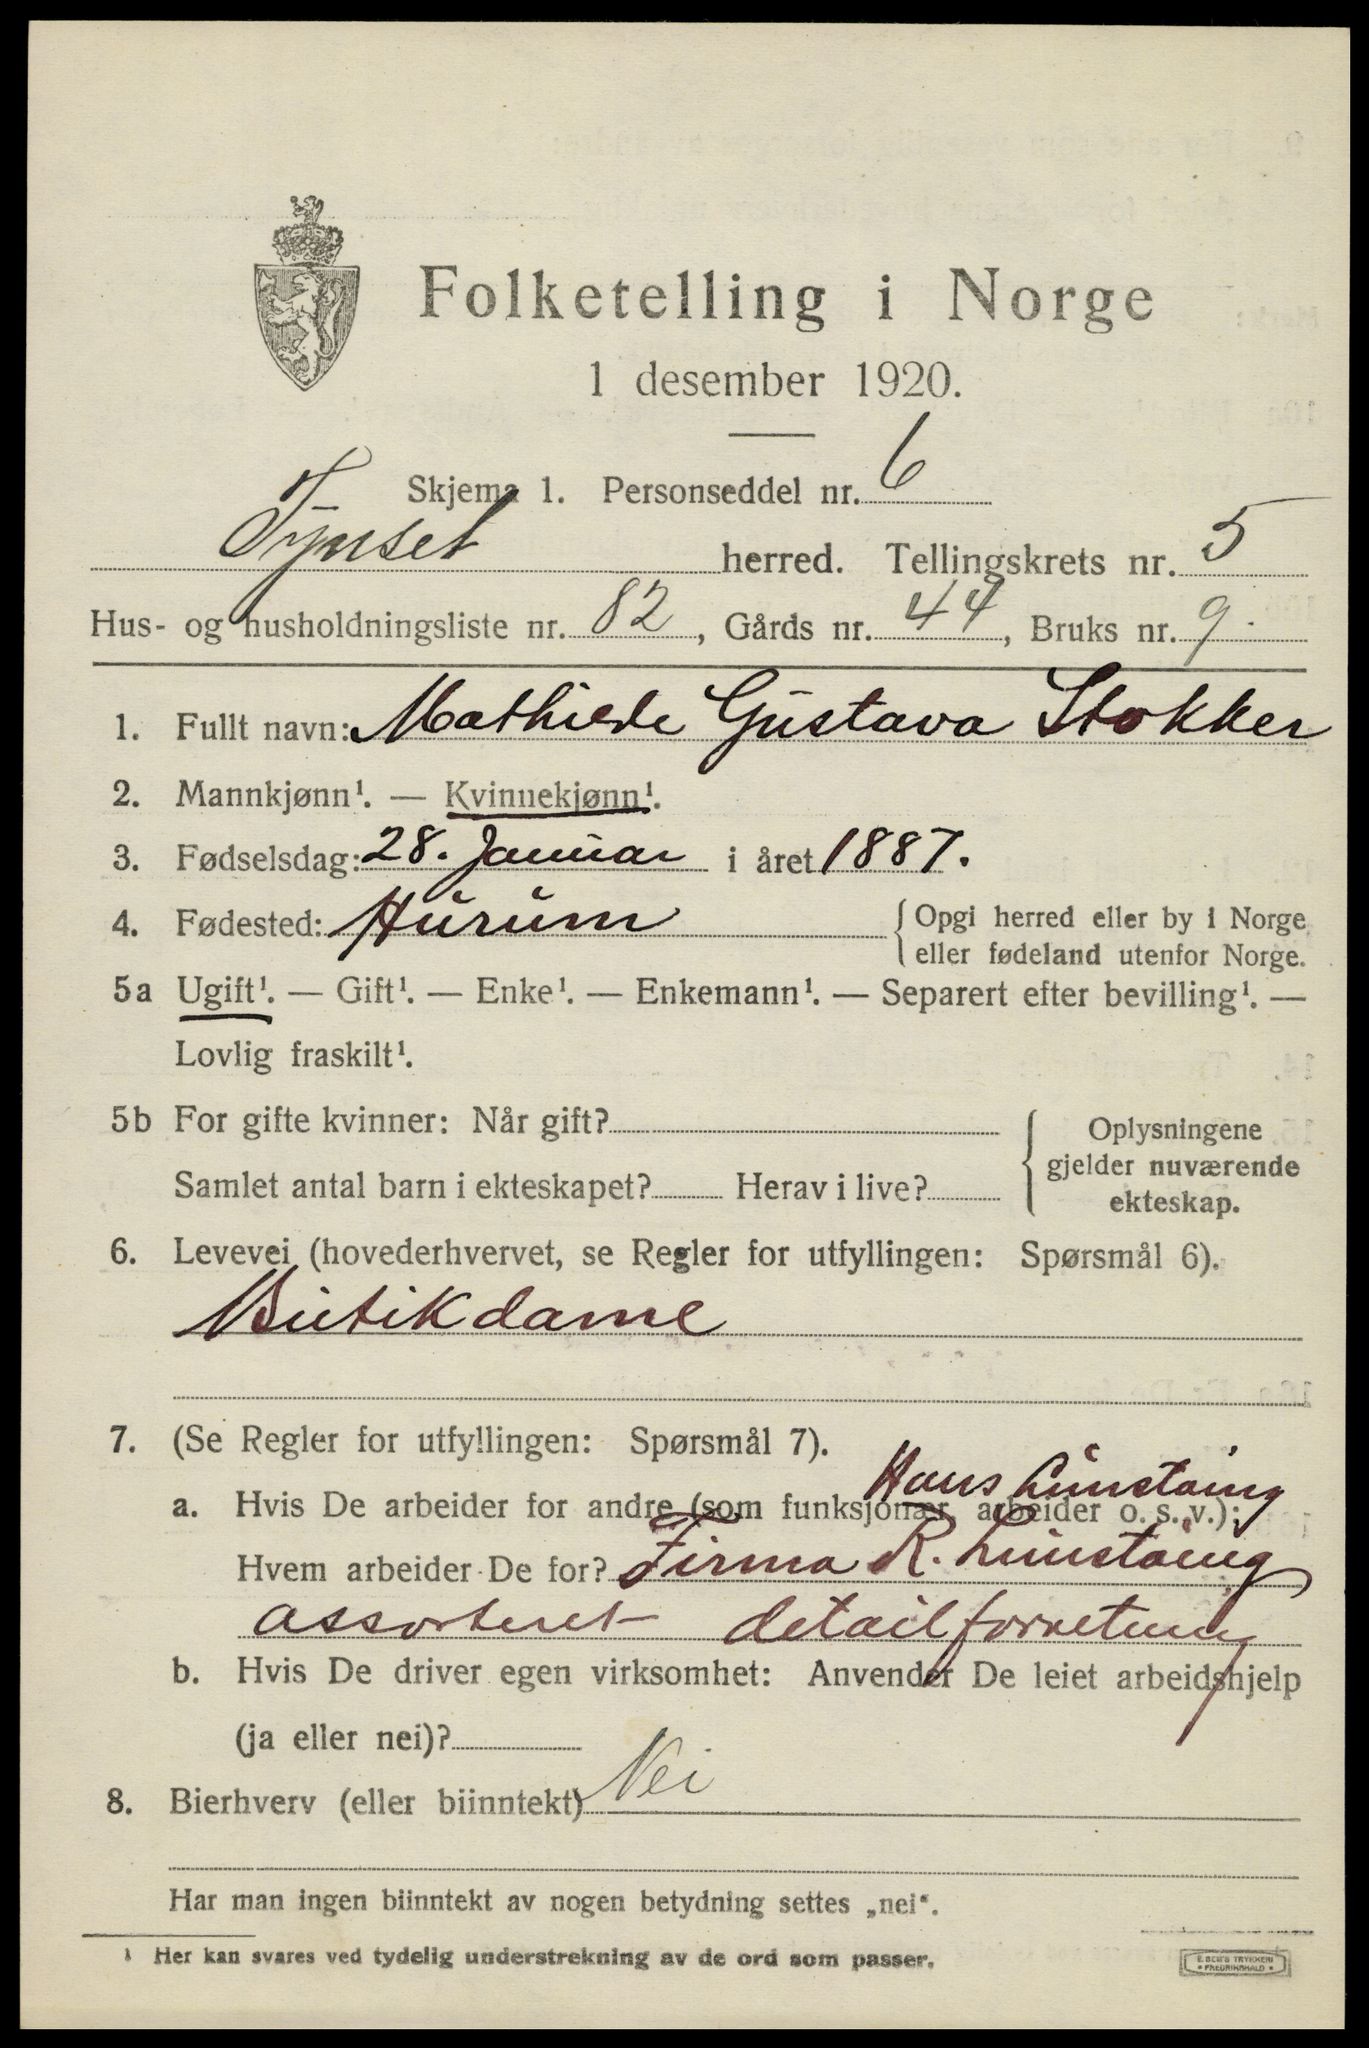 Folketelling i Norge
1 desember 1920.
Skjema 1. Personseddel nr. 6
Tynset herred. Tellingskrets nr. 5
Hus- og husholdningsliste nr. 82, Gårds nr. 44, Bruks nr. 9.
1. Fullt navn: Mathilde Gustava Stokker
2. Mannkjønn¹. — Kvinnekjønn¹.
3. Fødselsdag: 28. Januar i året 1887.
4. Fødested: Hurum { Opgi herred eller by i Norge
eller fødeland utenfor Norge.
5a Ugift¹. — Gift¹. — Enke¹. — Enkemann¹. — Separert efter bevilling¹. —
Lovlig fraskilt¹.
5b For gifte kvinner: Når gift? { Oplysningene
gjelder nuværende
Samlet antal barn i ekteskapet? Herav i live?
ekteskap.
6. Levevei (hovederhvervet, se Regler for utfyllingen: Spørsmål 6).
Butikdame
7. (Se Regler for utfyllingen: Spørsmål 7).
Hans
a. Hvis De arbeider for andre (som funksjonær, arbeider o. s. v.):
Hvem arbeider De for? Firma R.
assorteret detailforretning
b. Hvis De driver egen virksomhet: Anvender De leiet arbeidshjelp
(ja eller nei)?
8. Bierhverv (eller biinntekt) Nei
Har man ingen biinntekt av nogen betydning settes „nei“.
¹ Her kan svares ved tydelig understrekning av de ord som passer.
FREDRIKSHALD